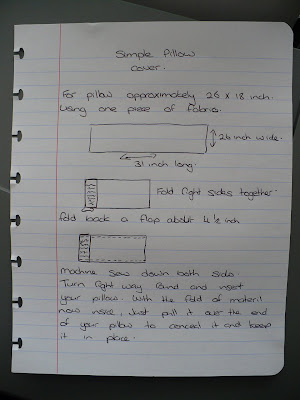 Simple Pillow
cover.
For pillow approximately 26 x 18 inch.
Using one piece of fabric.
26 inch wide.
31 inch long.
Fold right sides together.
fold back a flap about 4½ inch
machine sew down both side.
Turn right way round and insert
your pillow. With the fold of material
now inside, Just pull it over the end
of your pillow to conceal it and keep
it in place.